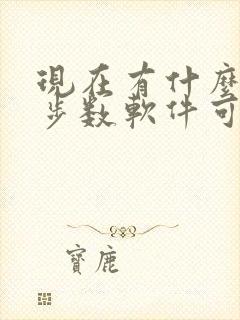 現在有什麼
步数軟件可
寶鹿